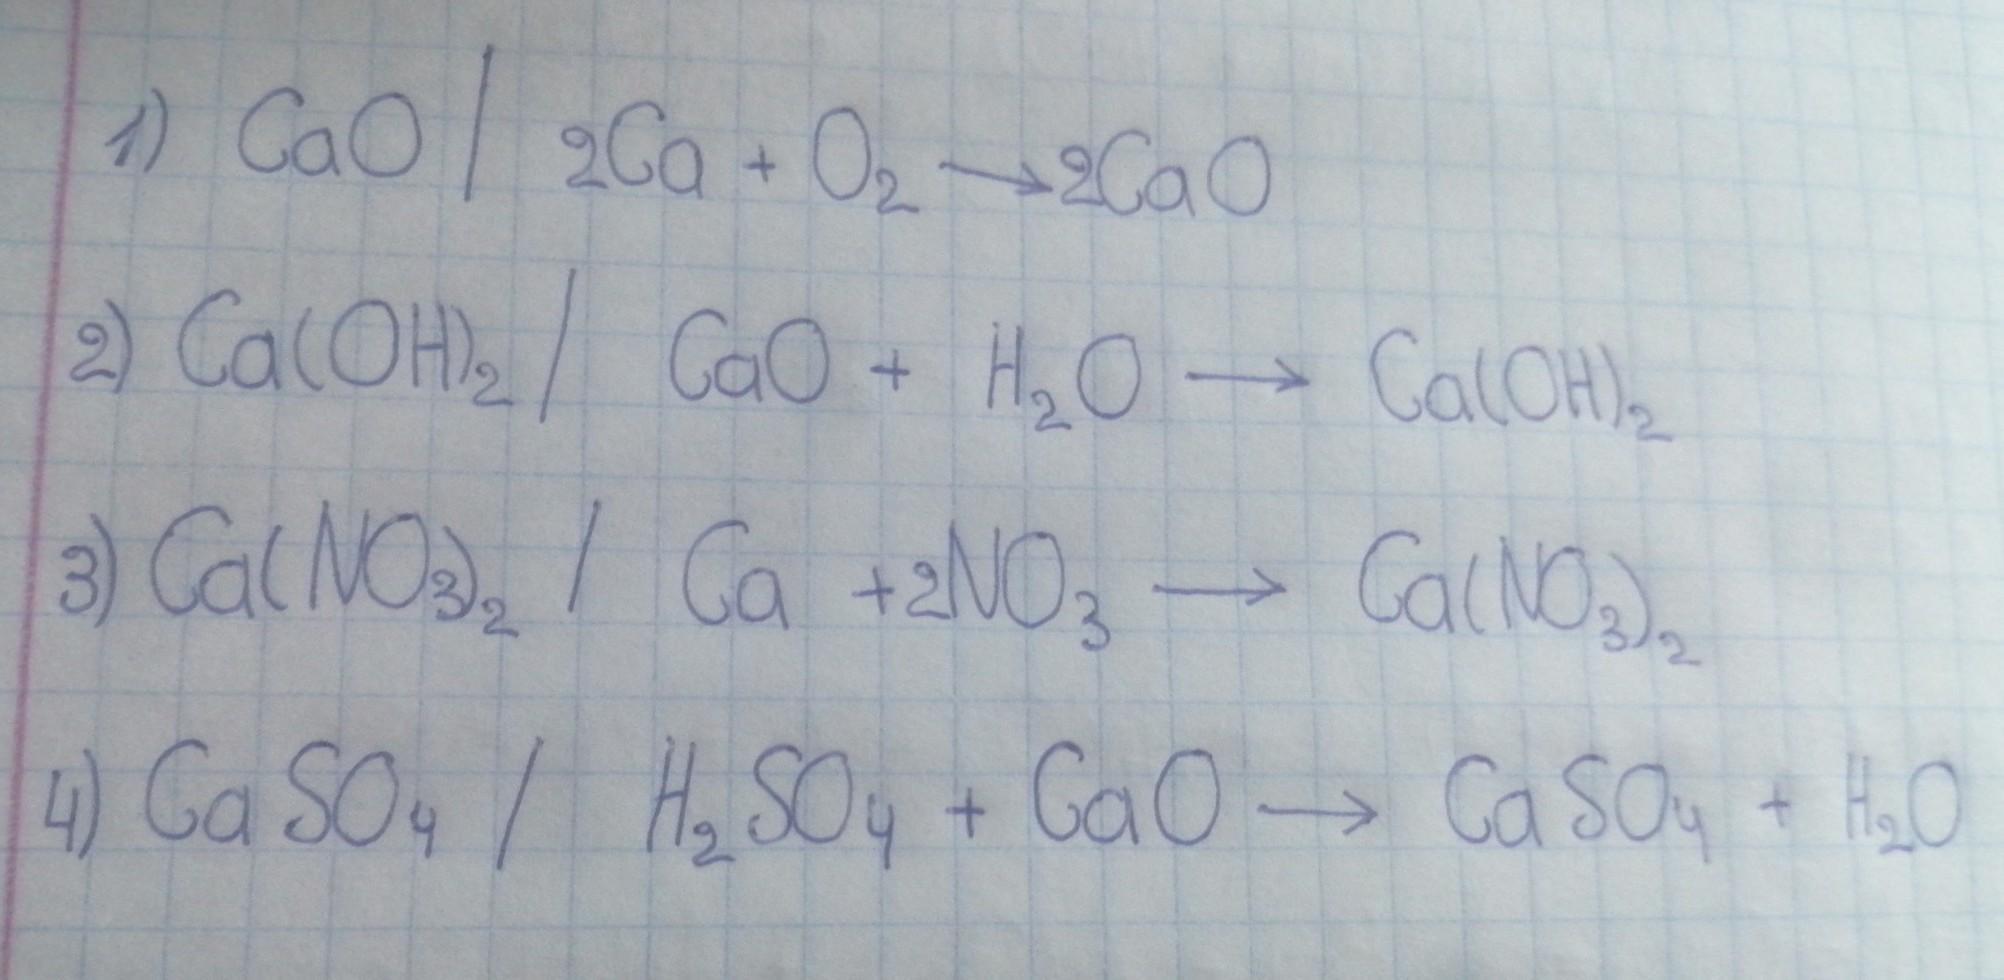 1) CaO / 2Ca + O₂ → 2CaO
2) Ca(OH)₂ / CaO + H₂O → Ca(OH)₂
3) Ca(NO₃)₂ / Ca + 2NO₃ → Ca(NO₃)₂
4) CaSO₄ / H₂SO₄ + CaO → CaSO₄ + H₂O